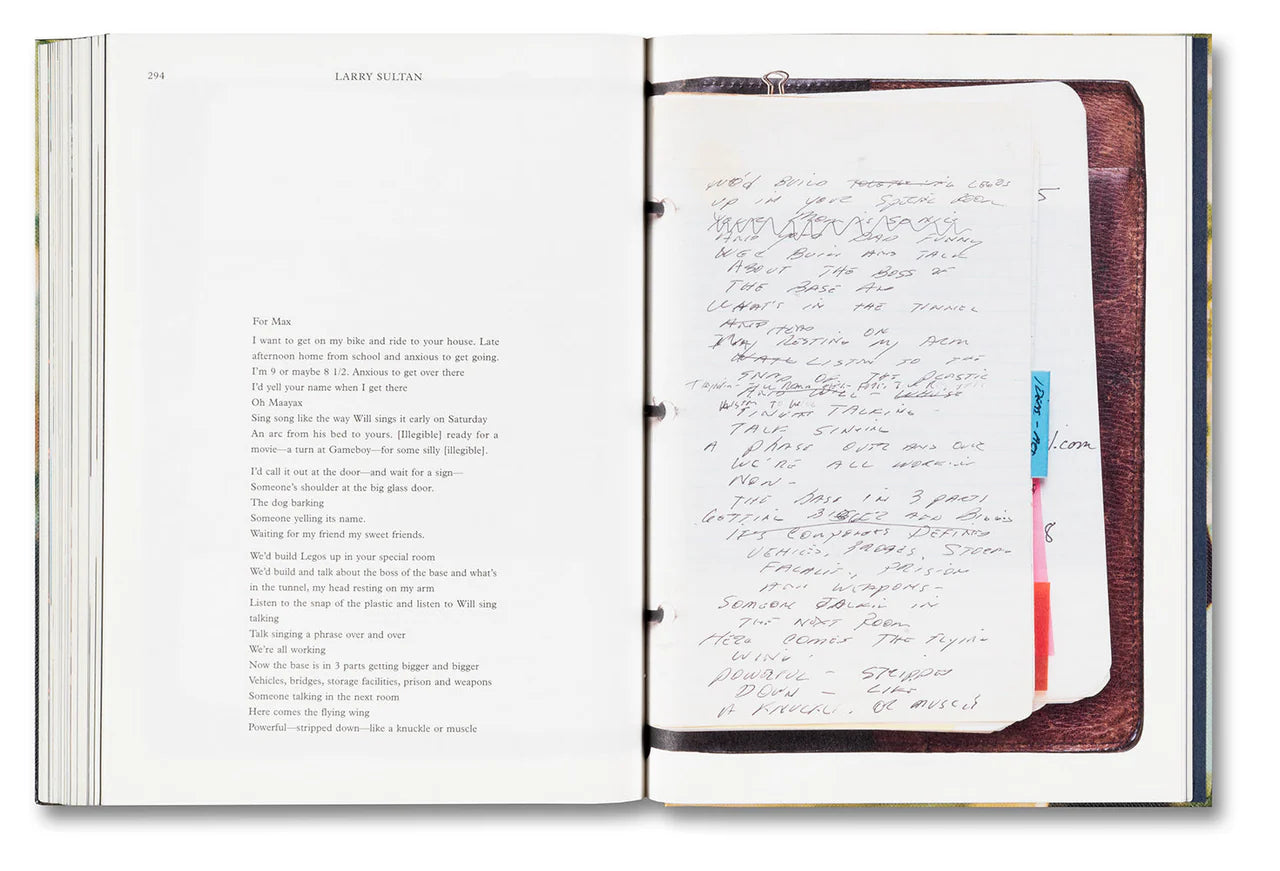 294
LARRY SULTAN
For Max
I want to get on my bike and ride to your house. Late
afternoon home from school and anxious to get going.
I'm 9 or maybe 8 1/2. Anxious to get over there
I'd yell your name when I get there
Oh Maayax
Sing song like the way Will sings it early on Saturday
An arc from his bed to yours. [Illegible] ready for a
movie—a turn at Gameboy—for some silly [illegible].
I'd call it out at the door—and wait for a sign—
Someone's shoulder at the big glass door.
The dog barking
Someone yelling its name.
Waiting for my friend my sweet friends.
We'd build Legos up in your special room
We'd build and talk about the boss of the base and what's
in the tunnel, my head resting on my arm
Listen to the snap of the plastic and listen to Will sing
talking
Talk singing a phrase over and over
We're all working
Now the base is in 3 parts getting bigger and bigger
Vehicles, bridges, storage facilities, prison and weapons
Someone talking in the next room
Here comes the flying wing
Powerful—stripped down—like a knuckle or muscle
WE'd BUILD LEGOS
UP IN YOUR SPECIAL ROOM
AND FUNNY
BUILD AND TALK
ABOUT THE BOSS OF
THE BASE AN
WHAT'S IN THE TUNNEL
HEAD ON
RESTING MY ARM
LISTEN TO THE
SNAP OF THE PLASTIC
AND WILL
TALKING
TALK SINGING
A PHRASE OVER AND OVER
WE'RE ALL WORKING
NOW-
THE BASE IN 3 PARTS
GETTING BIGGER AND BIGGER
ITS COMPONENTS DEFINED
VEHICLES, BRIDGES, STORAGE
PRISION
AND WEAPONS-
SOMEONE TALKIN IN
THE NEXT ROOM
HERE COMES THE FLYING
WING.
POWERFUL - STRIPPED
DOWN - LIKE
A KNUCKLE. OR MUSCLE
5
IDEAS -
.com
8